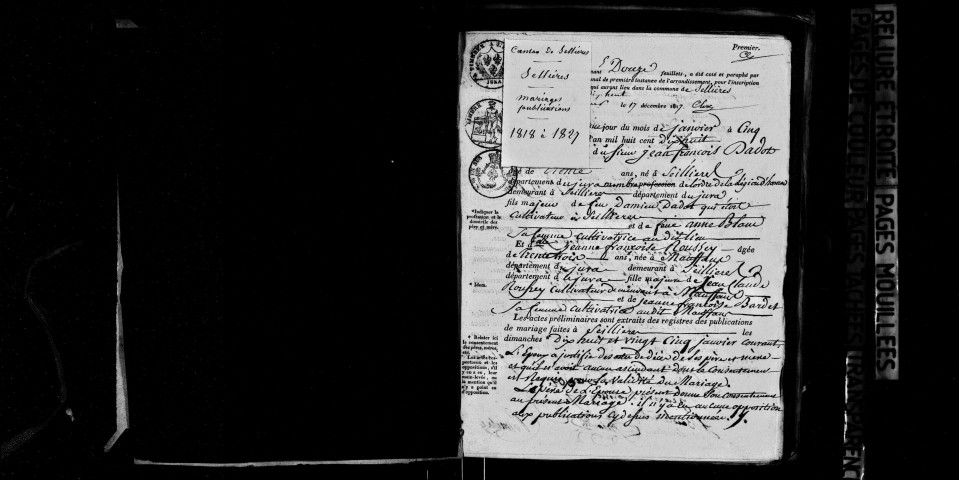 Premier.
Canton de Sellières
Sellières
mariages
publications
1818 à 1827
Douze feuillets, a été coté et paraphé par
de première instance de l'arrondissement, pour l'inscription
qui auront lieu dans la commune de Sellières
le 17 décembre 1817.
jour du mois de janvier à Cinq
an mil huit cent Dix huit
du sieur jean françois Dadot
âgé de trente ans, né à Seilliere
département du jura membre profession de l'ordre de la Légion d'honneur
demeurant à Seilliere département du jura
fils majeur de feu Damien Dadot qui étoit
cultivateur à Seilliere et de feue anne Blanc
Sa femme cultivatrice audit lieu
Et d jeanne françoise Roussey âgée
de trente trois ans, née à Mauffans
département du jura demeurant à Seilliere
département du jura fille majeure de Jean Claude
Roussey Cultivateur demeurant à Mauffans
et de jeanne françoise Bardet
Sa femme cultivatrice audit Mauffans
Les actes préliminaires sont extraits des registres des publications
de mariage faites à Seilliere les
dimanches Dix huit et vingt Cinq janvier Courant,
L'Epoux a justifié des actes de décè de Ses pere et mere
et qu'il n'avoit aucun ascendant dont le Consentement
est Requis pour la validité du Mariage.
Le pere de L'Epouse présent donne Son Consentement
au présent Mariage. il n'y a eu aucune opposition
aux publications cy dessus mentionnées.
* Indiquer la
profession et le
domicile des
père et mère.
* Idem.
* Relater ici
le consentement
des pères, mères,
etc.
oppositions, s'il
y en a eu, leur
main-levée, ou
la mention qu'il
n'y a point eu
d'opposition.
RELIURE ETROITE | PAGES MOUILLEES
PAGES DE COULEUR
PAGES TACHEES